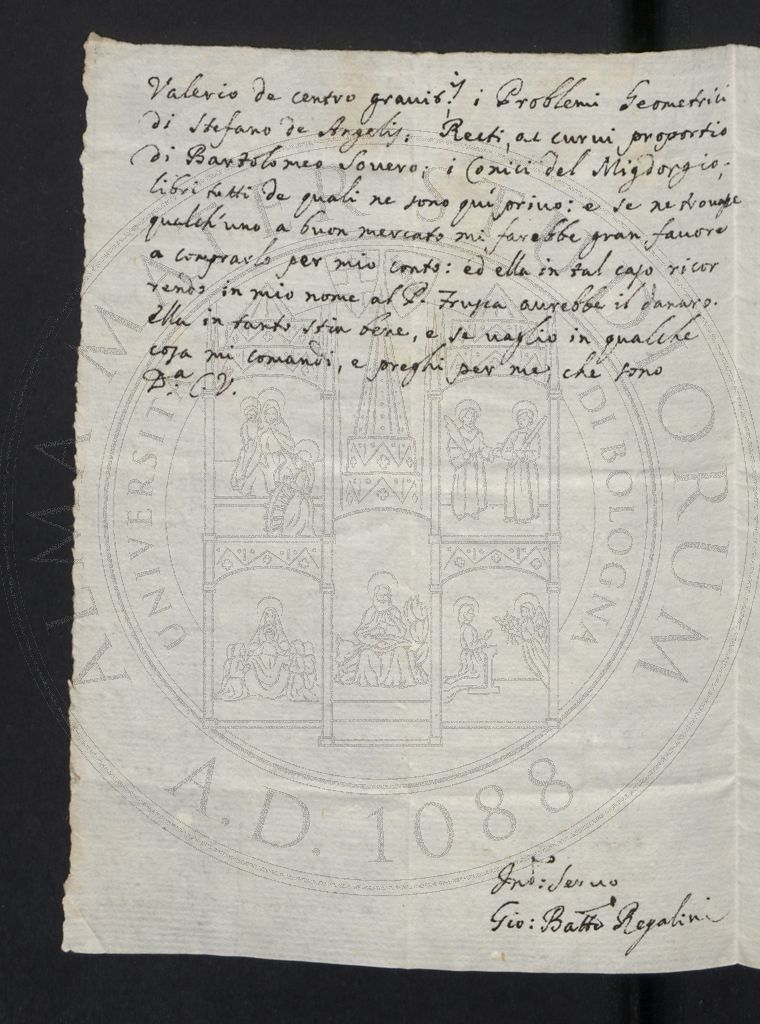 Valerio de centro gravit.is i Problemi Geometrici
di Stefano de Angelis; Recti, ac curui proportio
di Bartolomeo Souero; i Conici del Migdorgio;
libri tutti de quali ne sono quì priuo: e se ne trouasse
qualch'uno a buon mercato mi farebbe gran fauore
a comprarlo per mio conto: ed ella in tal caso ricor
rendo in mio nome al P. Frusca aurebbe il danaro.
Ella in tanto stia bene, e se uaglio in qualche
cosa mi comandi, e preghi per me, che sono
D.a C.V.
Seruo
Gio: Batta Regalini
ALMA MATER STUDIORUM
UNIVERSITÀ DI BOLOGNA
A.D. 1088